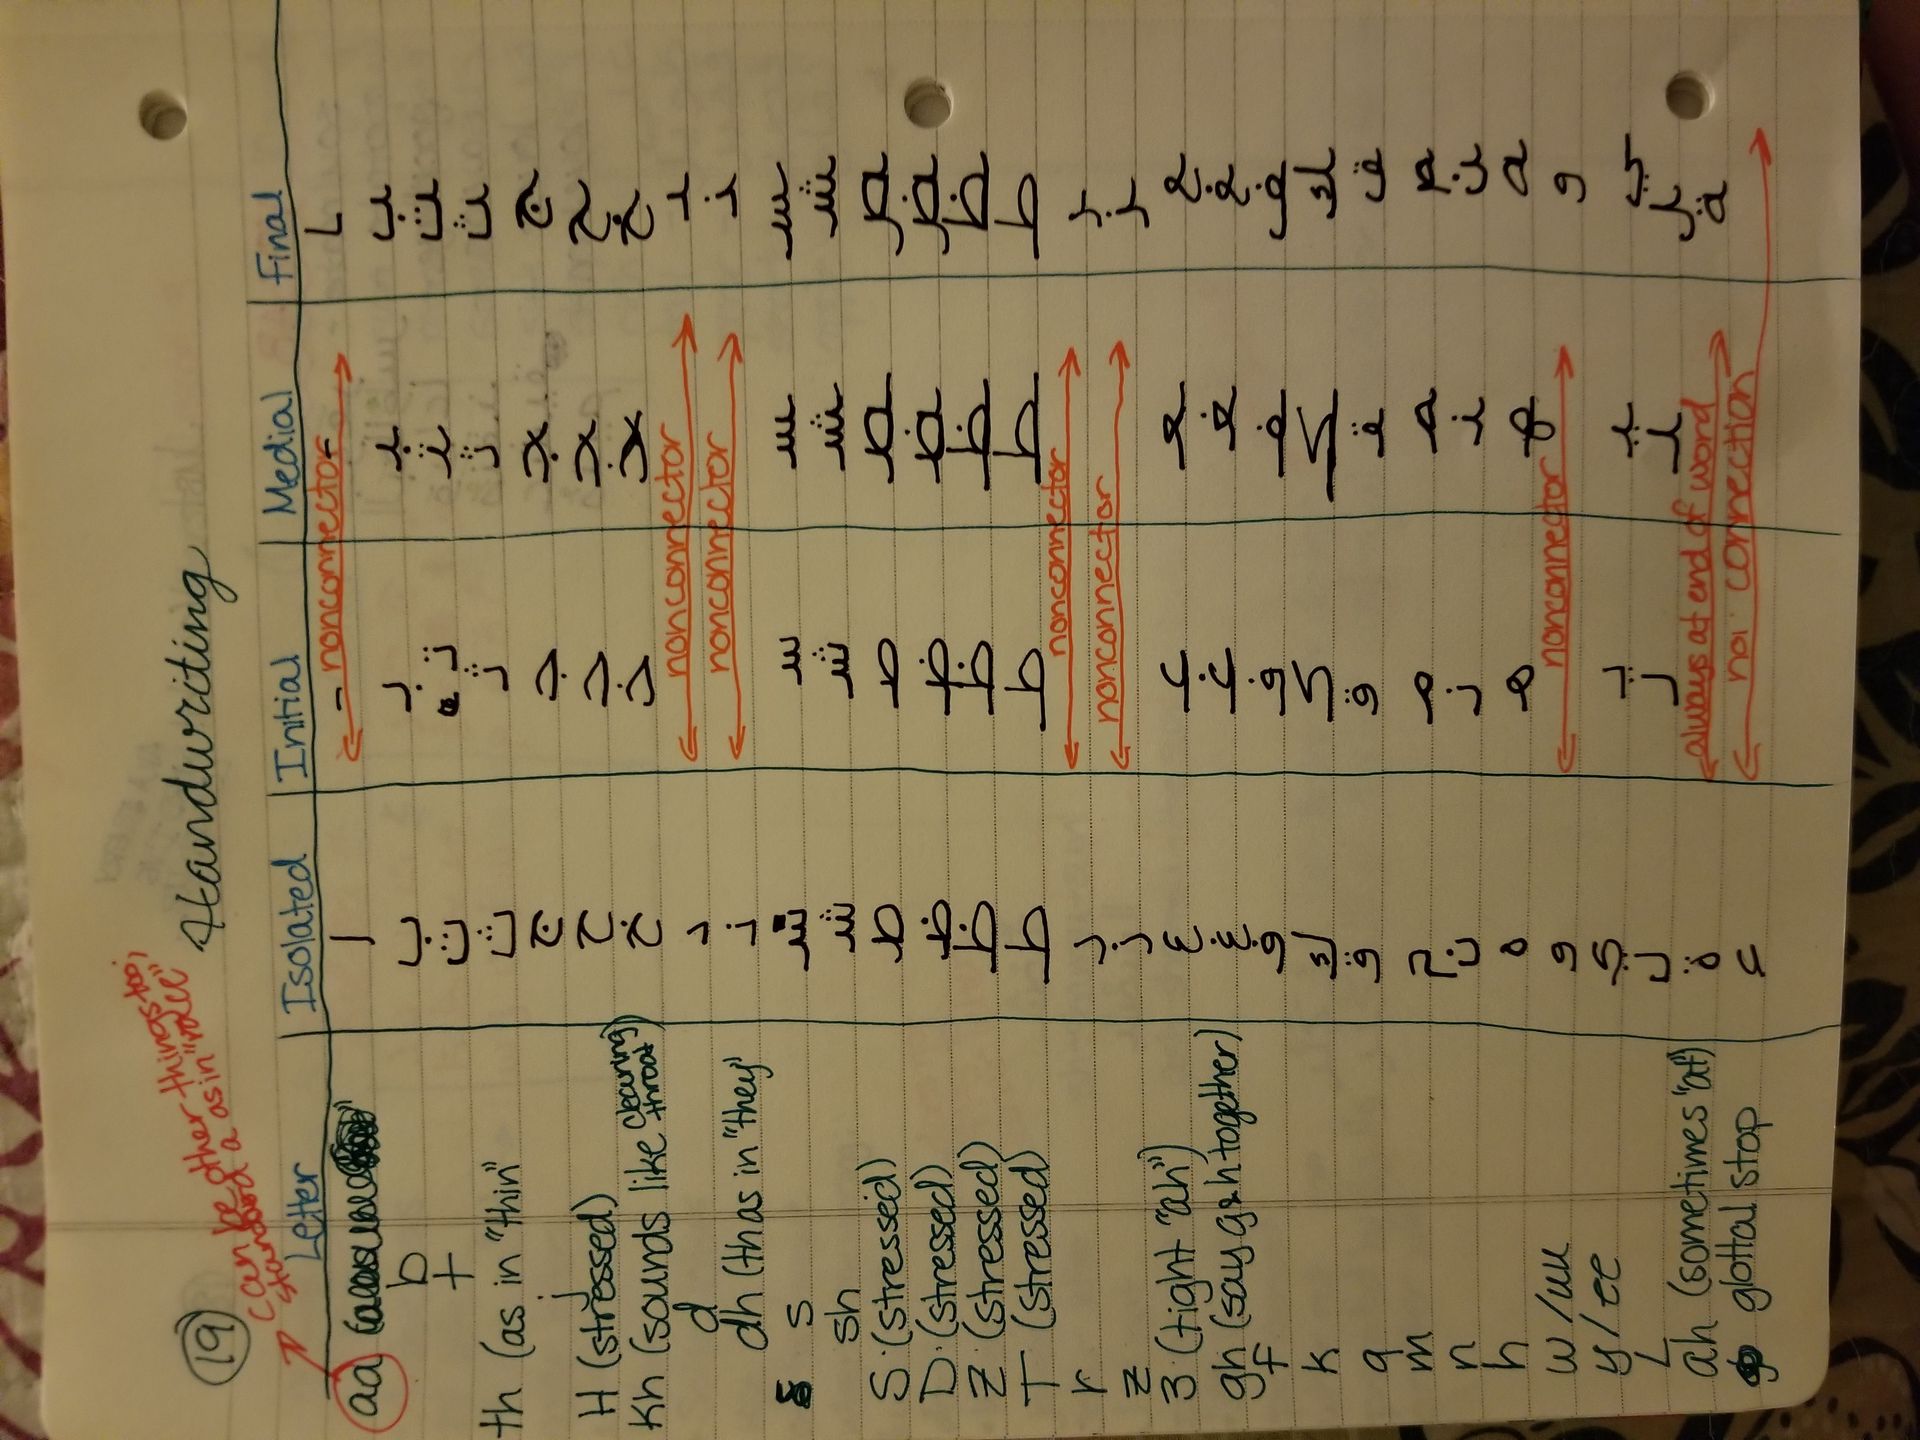 19
can be other things too;
standard a as in "race"
Handwriting
Letter Isolated Initial Medial Final
aa ا ـا nonconnector ـا
b ب بـ ـبـ ـب
t ت تـ ـتـ ـت
th (as in "thin" ث ثـ ـثـ ـث
j ج جـ ـجـ ـج
H (stressed) ح حـ ـحـ ـح
Kh (sounds like clearing throat) خ خـ ـخـ ـخ
d د nonconnector ـد
dh (th as in "they" ذ nonconnector ـذ
s س سـ ـسـ ـس
sh ش شـ ـشـ ـش
S (stressed) ص صـ ـصـ ـص
D (stressed) ض ضـ ـضـ ـض
Z (stressed) ظ ظـ ـظـ ـظ
T (stressed) ط طـ ـطـ ـط
r ر nonconnector ـر
z ز nonconnector ـز
3 (tight "ah") ع عـ ـعـ ـع
gh (say g & h together) غ غـ ـغـ ـغ
f ف فـ ـفـ ـف
k ك كـ ـكـ ـك
q ق قـ ـقـ ـق
m م مـ ـمـ ـم
n ن نـ ـنـ ـن
h ه هـ ـهـ ـه
w/uu و nonconnector ـو
y/ee ي يـ ـيـ ـي
L ل لـ ـلـ ـل
ah (sometimes "at") ة always at end of word ـة
glottal stop ء no connection